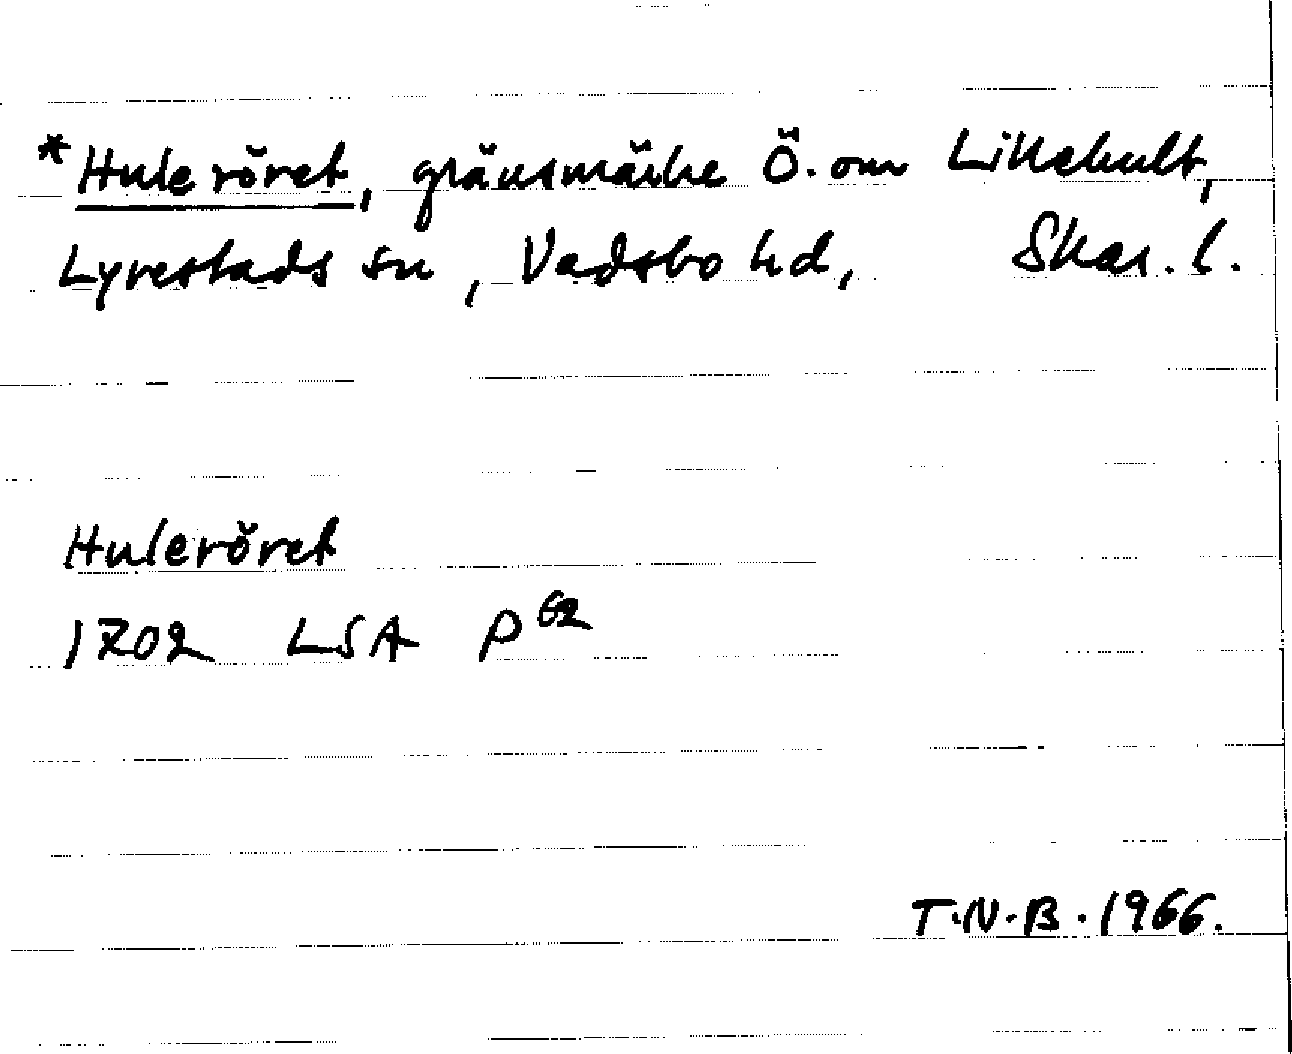 *Huleröret, gränsmärke Ö. om Lillehult,
Lyrestads sn, Vadsbo hd, Skar. l.
Huleröret
1702 LSA P 62
T.N.B. 1966.